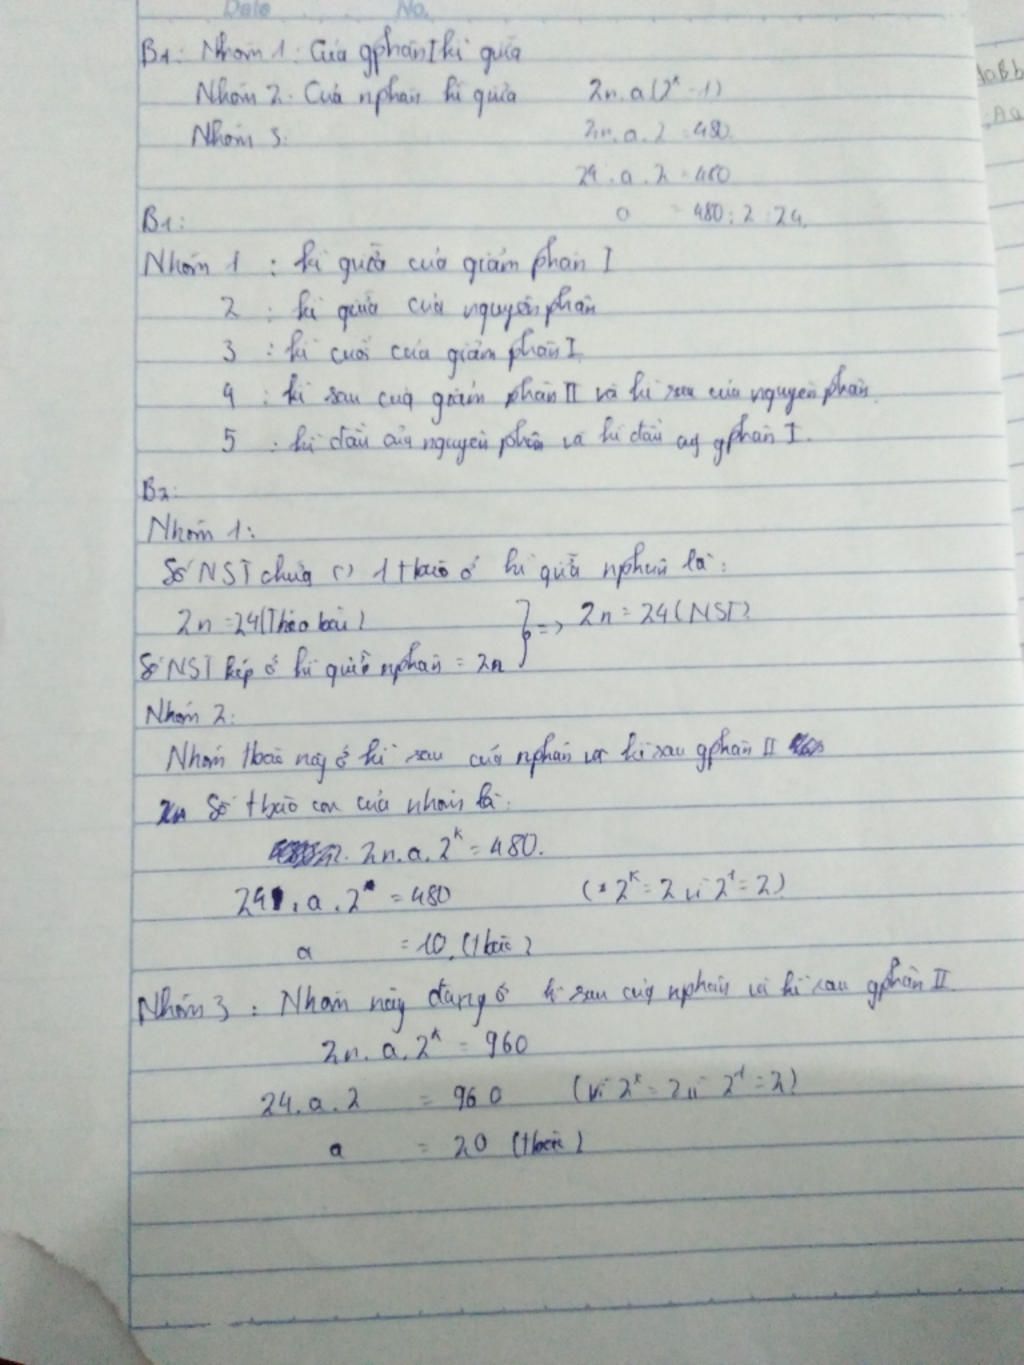 Date No.
B1: Nhóm 1: Của gphân I kì giữa
Nhóm 2: Của nphân kì giữa 2n.a(2^k-1)
Nhóm 3: 2n.a.2 = 480
24.a.2 = 480
a = 480:2:24.
B1:
Nhóm 1 : kì giữa của giảm phân I
2 : kì giữa của nguyên phân
3 : kì cuối của giảm phân I
4 : kì sau của giảm phân II và kì sau của nguyên phân.
5 : kì đầu của nguyên phân và kì đầu của gphân I.
B2:
Nhóm 1:
Số NST chứa 1 tbào ở kì giữa nphân là:
2n = 24 (Theo bài) } => 2n = 24 (NST)
Số NST kép ở kì giữa nphân = 2n
Nhóm 2:
Nhóm tbào này ở kì sau của nphân và kì sau gphân II
Số tbào con của nhóm là:
2n.a.2^k = 480.
24.a.2^k = 480 (2^k = 2 vì 2^1 = 2)
a = 10. (tbào)
Nhóm 3 : Nhóm này đang ở kì sau của nphân và kì sau gphân II.
2n.a.2^k = 960
24.a.2 = 960 (vì 2^k = 2 vì 2^1 = 2)
a = 20 (tbào)
aBb
Aa